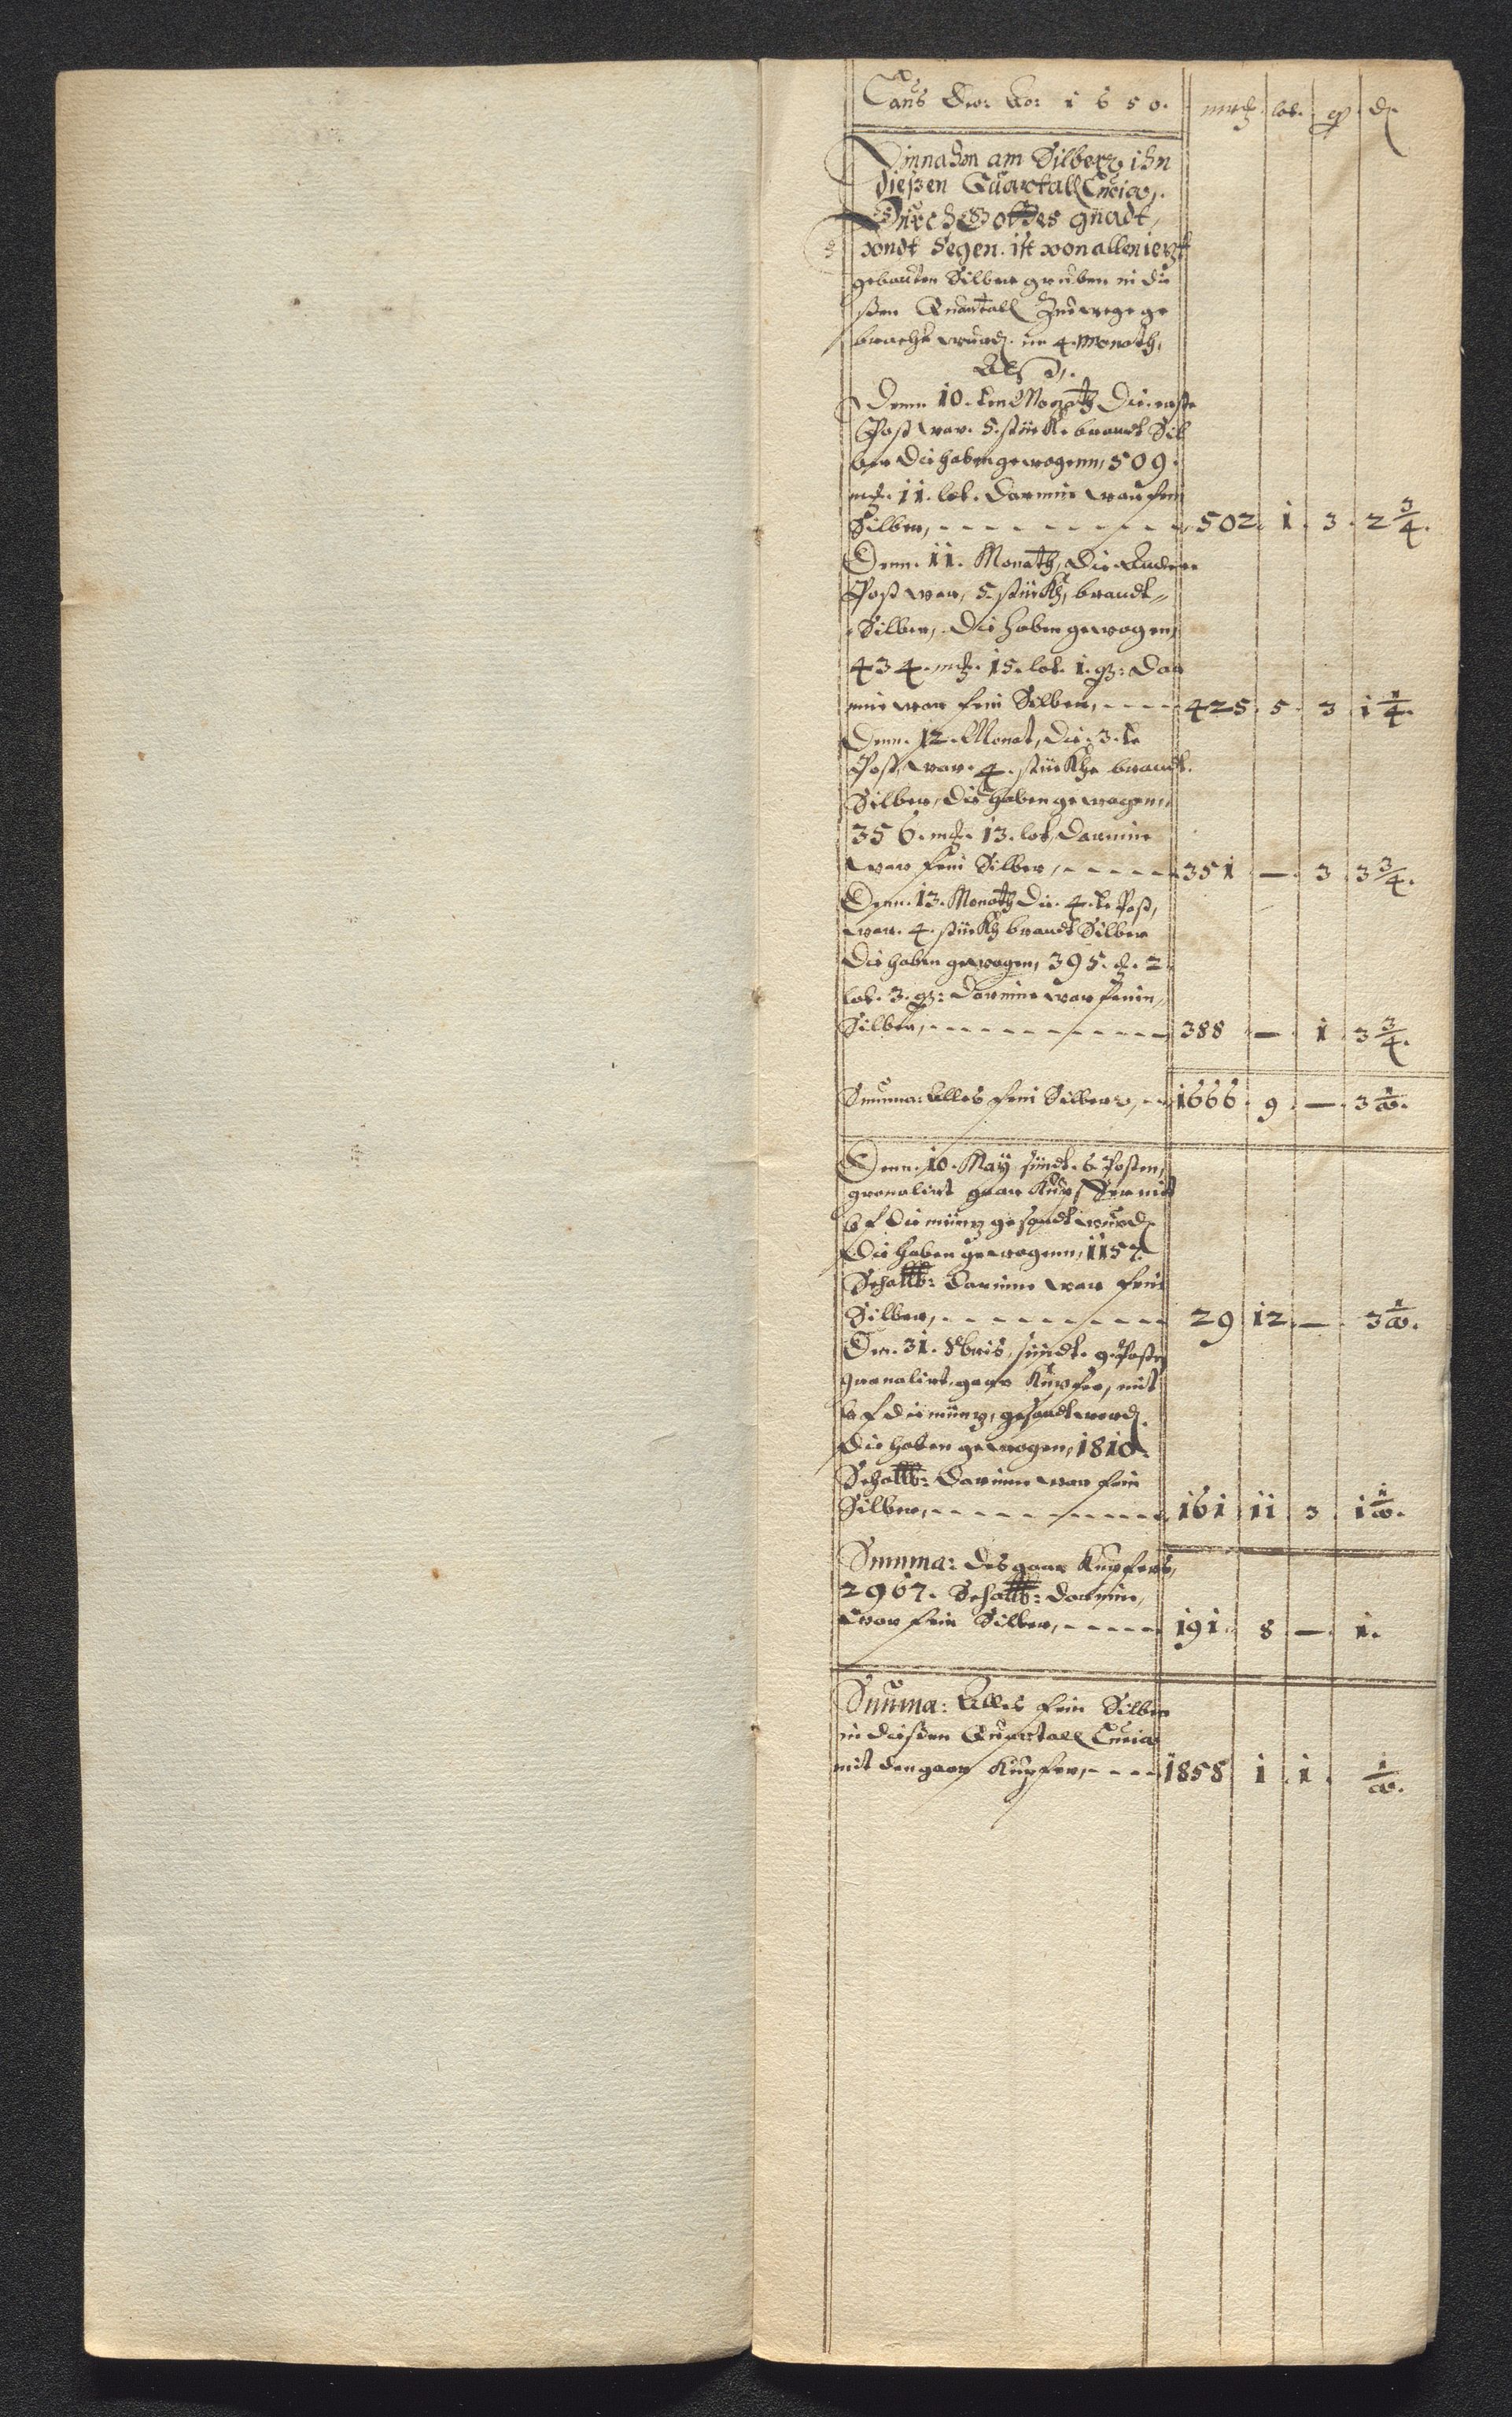 Laus Deo: Ao: 1650. mrck. lot. q d
Einnahm am Silberr, ihn
dießen Quartall Lucia,.
Durch Gottes gnadt,
vndt Segen. ist von allen ietzt
gebauten Silber gruben in die
ßen Quartall Zuwege ge
bracht wurd. in 4. Monath,
Als,
Denn 10. ten Monatz Die erste
Post war. 5. stück. brandt Sil
ber Die haben gewogenn, 509.
mck. 11. lot. Darinne war fein
Silber, 502. 1. 3. 2 3/4.
Denn. 11. Monatz, Die Andere
Post war, 5. stückh, brandt
Silber, Die haben gewogen,
434. mck. 15. lot. 1. q: Dar
inne war fein Silber, 425. 5. 3 1 1/4.
Denn. 12. Monat, Die. 3. te
Post, war. 4. stückhe brandt.
Silber, Die haben gewogen,
356. mck. 13. lot, Darinne
war fein Silber, 351 — 3 3 3/4.
Denn. 13. Monatz Die. 4. te Post,
war. 4. stückh brandt Silber
Die haben gewogen, 395. ck. 2
lot. 3. q: Darinne war feinn,
Silber, 388 — 1. 3 3/4.
Summa: Alles fein Silberr, 1666. 9. —. 3 1/2.
Denn. 10. Maÿ. sindt. 6. Posten,
granalirt gaar Kupfer mit
vf die müntz gesandt wurd.
Die haben gewogenn, 1157.
Schalllb: Darinne war fein
Silber, 29 12. —. 3 1/2.
Den. 31. 8bris, sindt. 9. Posten
granalirt. gaar Kupfer, mit
vf die müntz, gesandt word.
Die haben gewogen, 1810.
Schalllb: Darinne war fein
Silber, 161 11. 3. 1 1/2.
Summa: Des gaar Kupfers,
2967. Schalllb: Darinne,
war fein Silber, 191. 8 —. 1.
Summa: Alles fein Silber
in dießen Quartall Lucia
mit den gaar Kupfer, 1858 1. 1. 1/2.